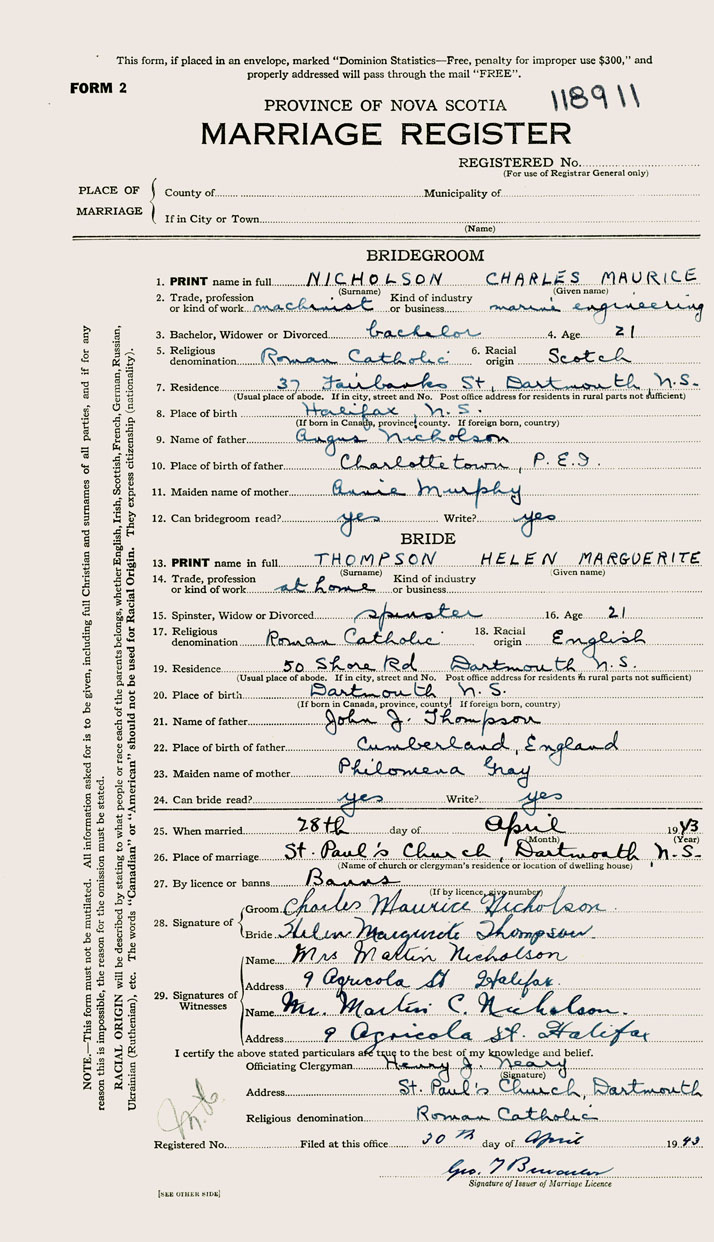 This form, if placed in an envelope, marked “Dominion Statistics—Free, penalty for improper use $300,” and
properly addressed will pass through the mail “FREE”.
FORM 2
PROVINCE OF NOVA SCOTIA 118911
MARRIAGE REGISTER
REGISTERED No.
(For use of Registrar General only)
PLACE OF MARRIAGE
County of Municipality of
If in City or Town
(Name)
BRIDEGROOM
1. PRINT name in full NICHOLSON CHARLES MAURICE
(Surname) (Given name)
2. Trade, profession or kind of work machinist Kind of industry or business marine engineering
3. Bachelor, Widower or Divorced bachelor 4. Age 21
5. Religious denomination Roman Catholic 6. Racial origin Scotch
7. Residence 37 Fairbanks St, Dartmouth, N.S.
(Usual place of abode. If in city, street and No. Post office address for residents in rural parts not sufficient)
8. Place of birth Halifax, N.S.
(If born in Canada, province, county. If foreign born, country)
9. Name of father Angus Nicholson
10. Place of birth of father Charlottetown, P.E.I.
11. Maiden name of mother Annie Murphy
12. Can bridegroom read? yes Write? yes
BRIDE
13. PRINT name in full THOMPSON HELEN MARGUERITE
(Surname) (Given name)
14. Trade, profession or kind of work at home Kind of industry or business
15. Spinster, Widow or Divorced spinster 16. Age 21
17. Religious denomination Roman Catholic 18. Racial origin English
19. Residence 50 Shore Rd Dartmouth N.S.
(Usual place of abode. If in city, street and No. Post office address for residents in rural parts not sufficient)
20. Place of birth Dartmouth N.S.
(If born in Canada, province, county. If foreign born, country)
21. Name of father John J. Thompson
22. Place of birth of father Cumberland, England
23. Maiden name of mother Philomena Gray
24. Can bride read? yes Write? yes
25. When married 28th day of April 1943
(Month) (Year)
26. Place of marriage St. Paul's Church, Dartmouth, N.S.
(Name of church or clergyman's residence or location of dwelling house)
27. By licence or banns Banns
(If by licence, give number)
28. Signature of
Groom Charles Maurice Nicholson.
Bride Helen Marguerite Thompson.
29. Signatures of Witnesses
Name Mrs Martin Nicholson
Address 9 Agricola St Halifax.
Name Mr. Martin C. Nicholson.
Address 9 Agricola St. Halifax
I certify the above stated particulars are true to the best of my knowledge and belief.
Officiating Clergyman Henry J. Neary
(Signature)
Address St. Paul's Church, Dartmouth
Religious denomination Roman Catholic
Registered No. Filed at this office 30th day of April 1943
Geo. T
Signature of Issuer of Marriage Licence
[SEE OTHER SIDE]
NOTE.—This form must not be mutilated. All information asked for is to be given, including full Christian and surnames of all parties, and if for any
reason this is impossible, the reason for the omission must be stated.
RACIAL ORIGIN will be described by stating to what people or race each of the parents belongs, whether English, Irish, Scottish, French, German, Russian,
Ukrainian (Ruthenian), etc. The words “Canadian” or “American” should not be used for Racial Origin. They express citizenship (nationality).